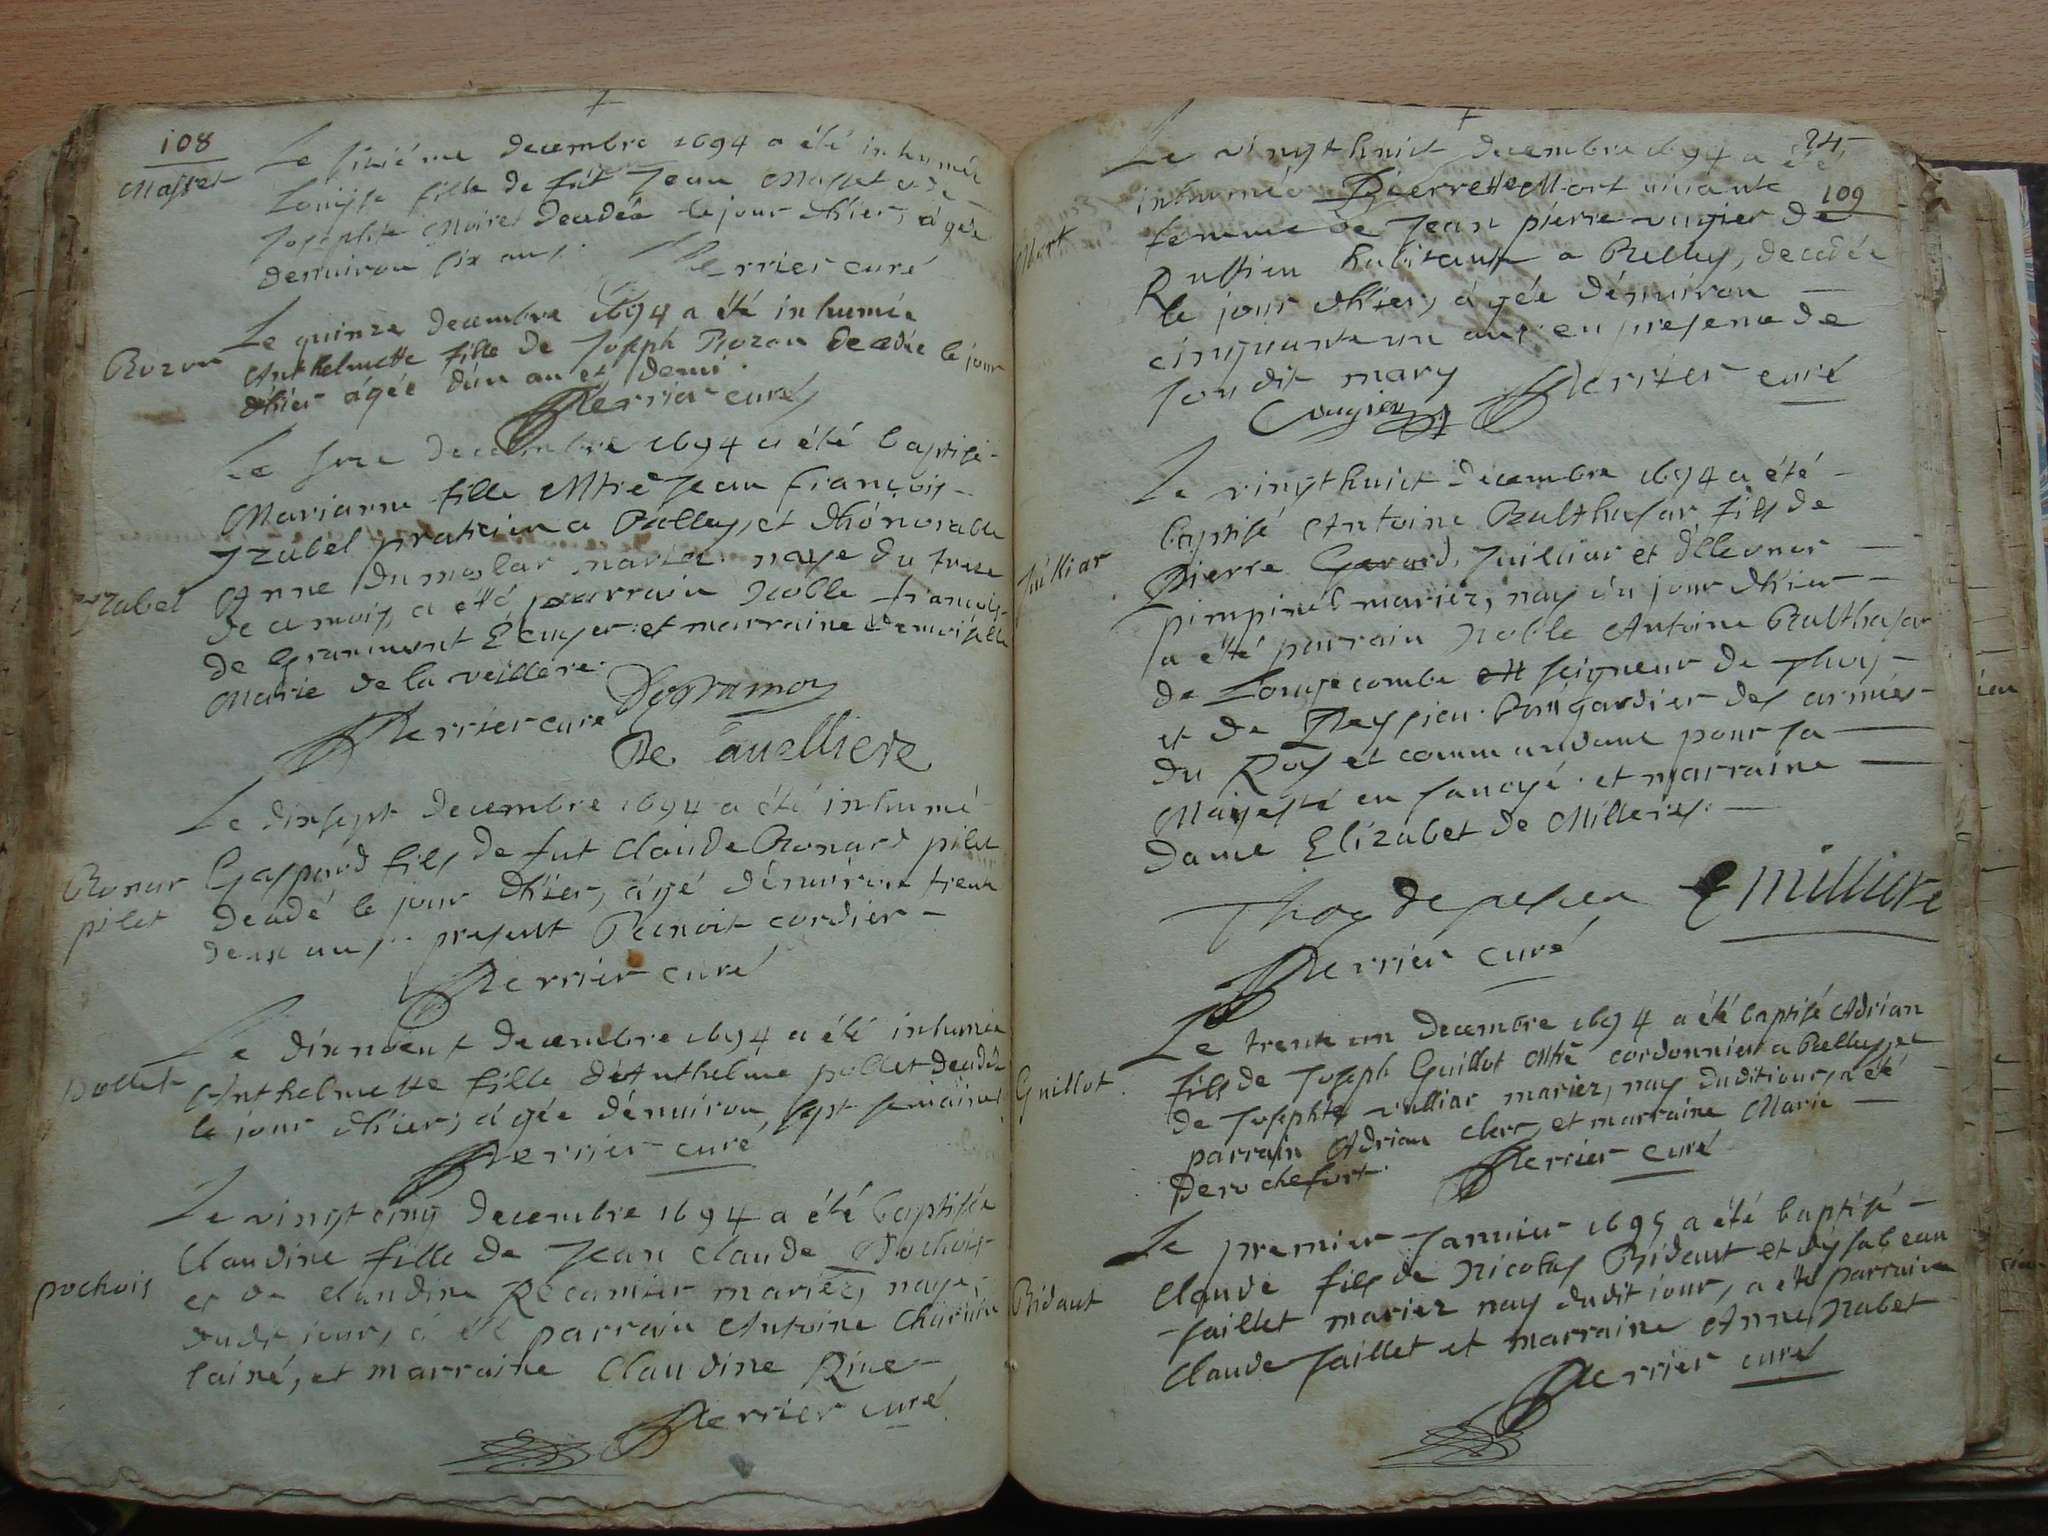 108
Masset
Le siziéme decembre 1694 a été inhumée
Louyse fille de fut Jean Masset et de
Josephte Moiret decedée le jour d'hier, agée
denuiron six ans. Perrier curé
Rozon
Le quinze decembre 1694 a été inhumée
Anthelmette fille de Joseph Rozon decedée le jour
d'hier agée d'un an et demi.
Perrier curé
Le seze decembre 1694 a été baptisé
Marianne fille Mtre Jean françois
Yzabel praticien a Belley, et d'honorable
Yzabel
Anne Dumollar mariez naye du treze
de ce mois, a été parrain Noble françois
de Grammont Ecuyer et marraine demoiselle
Marie de la veillere.
Perrier curé Degramon
De Lauelliere
Le dixsept decembre 1694 a été inhumé
Bonar pilet
Gaspard fils de fut Claude Bonard pilet
decedé le jour d'hier, agé dénuiron trente
deux ans, present Benoit cordier
Perrier curé
Le dixneuf decembre 1694 a été inhumée
Pollet
Anthelmette fille d'Anthelme pollet decedée
le jour d'hier, agée dénuiron sept semaines
Perrier curé
Le vingt cinq decembre 1694 a été baptisée
Claudine fille de Jean Claude Pochois
pochois
et de claudine Recamier mariez, naye
dudt jour, a été parrain Antoine
lainé, et marraine Claudine Riue
Perrier curé
34
109
Le vingthuict decembre 1694 a été
Mort
inhumée Pierrette Mort viuante
femme de Jean pierre vugier de
Ruffieu habitant a Belley, decedée
le jour d'hier, agée dénuiron
cinquante un ans en presence de
sondit mary Perrier curé
Vugier
Le vingthuict decembre 1694 a été
baptisé Antoine Balthasar fils de
Juilliar
Pierre Gerard Juilliar et d'Eleonor
pimpinel mariez, nay du jour d'hier
a été parrain Noble Antoine Balthasar
de Longecombe seigneur de Thuy
et de Peysieu Brigadier des armées
du Roy et commandant pour sa
Majesté en sauoye et marraine
dame Elizabet de Millieres.
Thoy de pesieu E milliere
Perrier curé
Le trente un decembre 1694 a été baptisé Adrian
Guillot
fils de Joseph Guillot Mtre cordonnier a Belley, et
de Josephte vulliar mariez, nay dudit jour, a été
parrain Adrian clerc, et marraine Marie
Derochefort. Perrier curé
Le premier Januier 1695 a été baptisé
Bidaut
Claude fils de Nicolas Bidaut et d'ysabeau
Jaillet mariez nay dudit jour, a été parrain
Claude Jaillet et marraine Anne Yzabet
Perrier curé